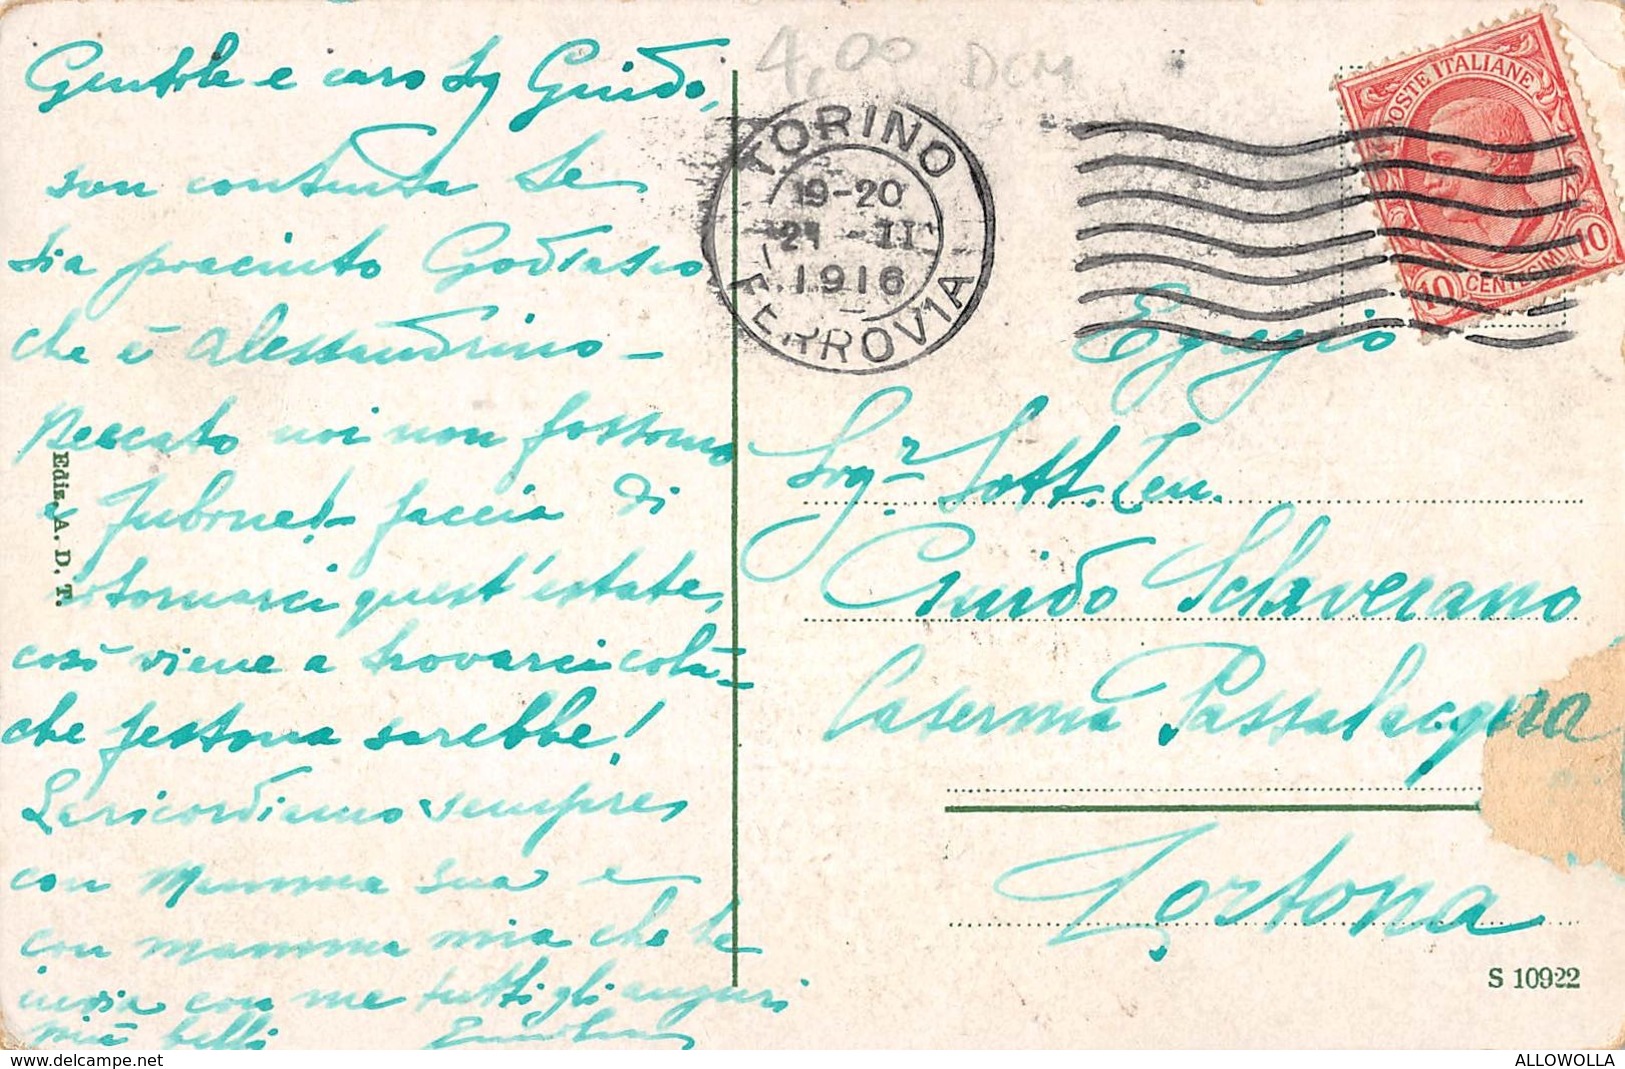 Gentile e caro Sig Guido,
son contenta le
sia piaciuto
che è alessandrino -
Peccato noi non fossimo
a faccia di
quest'estate,
così viene a trovarci colà -
che festona sarebbe!
La ricordiamo sempre
con Mamma sua e
con mamma mia che le
invia con me tutti gli auguri
più belli
Ediz. A. D. T.
4,00 DCM
TORINO
19-20
21 -II
1916
FERROVIA
POSTE ITALIANE
10 CENTESIMI 10
Egregio
Sigr Sott. Ten.
Guido Sclaverano
Caserma Passalacqua
Tortona
S 10922
delcampe.net
ALLOWOLLA